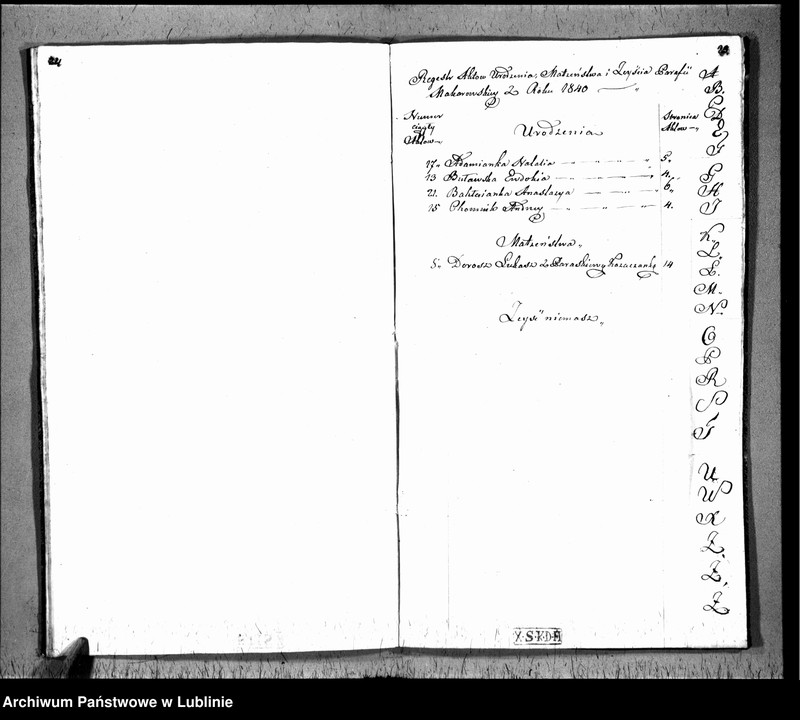 Regestr Aktow Urodzenia, Małzeństwa i Zeyścia Parafii
Makarowskiey z Roku 1840
Numer
ciągły
Aktow
Urodzenia
Stronica
Aktow
17. Adamianka Natalia 5.
13 Butawska Eudokia 4.
21. Anastazya 6.
15 Chomiuk Andrzey 4.
Małzeństwa
5. Dorosz Łukasz z Paraskiewą Kozaczanką 14
Zeyść niemasz
A
B.
C
D
E
F
G
H
I
K.
L.
Ł.
M.
N.
O
P
R
S
T
U
W
X
Z.
Ż.
Ź
X·S·K·D·H
Archiwum Państwowe w Lublinie